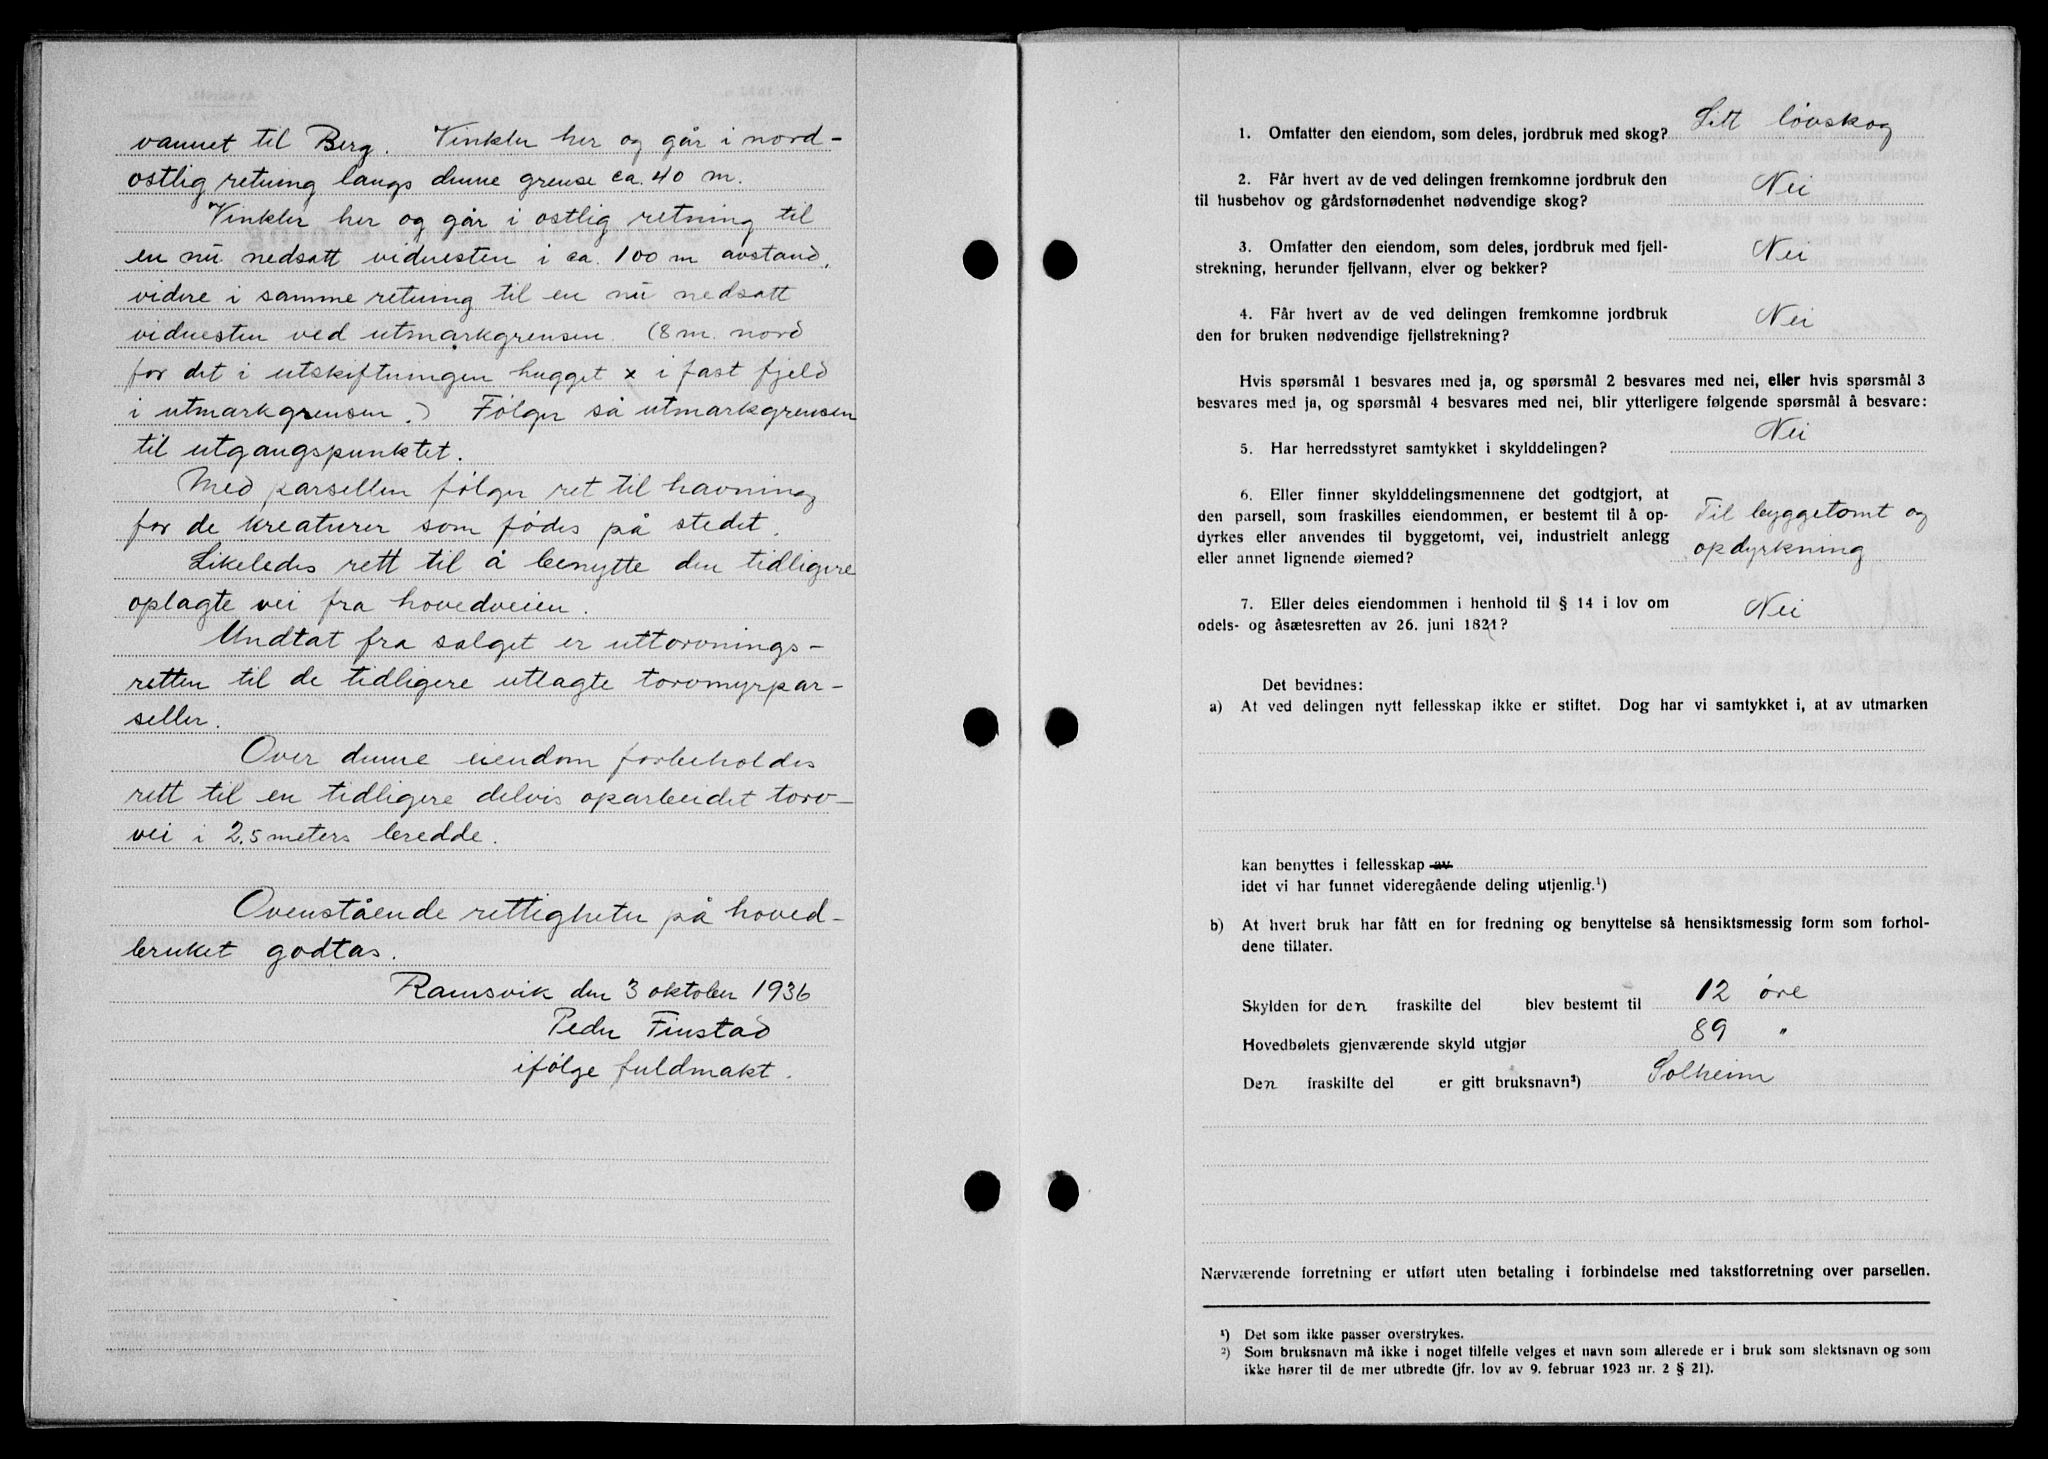 vannet til Berg. Vinkler her og går i nord-
ostlig retning langs denne grense ca. 40 m.
Vinkler her og går i ostlig retning til
en nu nedsatt vidnesten i ca. 100 m avstand,
videre i samme retning til en nu nedsatt
vidnesten ved utmarkgrensen. (8 m. nord
for det i utskiftningen hugget x i fast fjeld
i utmarkgrensen.) Følger så utmarkgrensen
til utgangspunktet.
Med parsellen følger ret til havning
for de kreaturer som fødes på stedet.
Likeledes rett til å benytte den tidligere
oplagte vei fra hovedveien.
Undtat fra salget er uttorvnings-
retten til de tidligere utlagte torvmyrpar-
seller.
Over denne eiendom forbeholdes
rett til en tidligere delvis oparbeidet torv-
vei i 2,5 meters bredde.
Ovenstående rettigheter på hoved-
bruket godtas.
Ramsvik den 3 oktober 1936
Peder Finstad
ifølge fuldmakt.
1. Omfatter den eiendom, som deles, jordbruk med skog? Litt løvskog
2. Får hvert av de ved delingen fremkomne jordbruk den
til husbehov og gårdsfornødenhet nødvendige skog? Nei
3. Omfatter den eiendom, som deles, jordbruk med fjell-
strekning, herunder fjellvann, elver og bekker? Nei
4. Får hvert av de ved delingen fremkomne jordbruk
den for bruken nødvendige fjellstrekning? Nei
Hvis spørsmål 1 besvares med ja, og spørsmål 2 besvares med nei, eller hvis spørsmål 3
besvares med ja, og spørsmål 4 besvares med nei, blir ytterligere følgende spørsmål å besvare:
5. Har herredsstyret samtykket i skylddelingen? Nei
6. Eller finner skylddelingsmennene det godtgjort, at
den parsell, som fraskilles eiendommen, er bestemt til å op-
dyrkes eller anvendes til byggetomt, vei, industrielt anlegg
eller annet lignende øiemed?
Til byggetomt og
opdyrkning
7. Eller deles eiendommen i henhold til § 14 i lov om
odels- og åsætesretten av 26. juni 1821? Nei
Det bevidnes:
a) At ved delingen nytt fellesskap ikke er stiftet. Dog har vi samtykket i, at av utmarken
kan benyttes i fellesskap av
idet vi har funnet videregående deling utjenlig.¹)
b) At hvert bruk har fått en for fredning og benyttelse så hensiktsmessig form som forhol-
dene tillater.
Skylden for den fraskilte del blev bestemt til 12 øre
Hovedbølets gjenværende skyld utgjør 89 "
Den fraskilte del er gitt bruksnavn²) Solheim
Nærværende forretning er utført uten betaling i forbindelse med takstforretning over parsellen.
¹) Det som ikke passer overstrykes.
²) Som bruksnavn må ikke i noget tilfelle velges et navn som allerede er i bruk som slektsnavn og som
ikke hører til de mer utbredte (jfr. lov av 9. februar 1923 nr. 2 § 21).